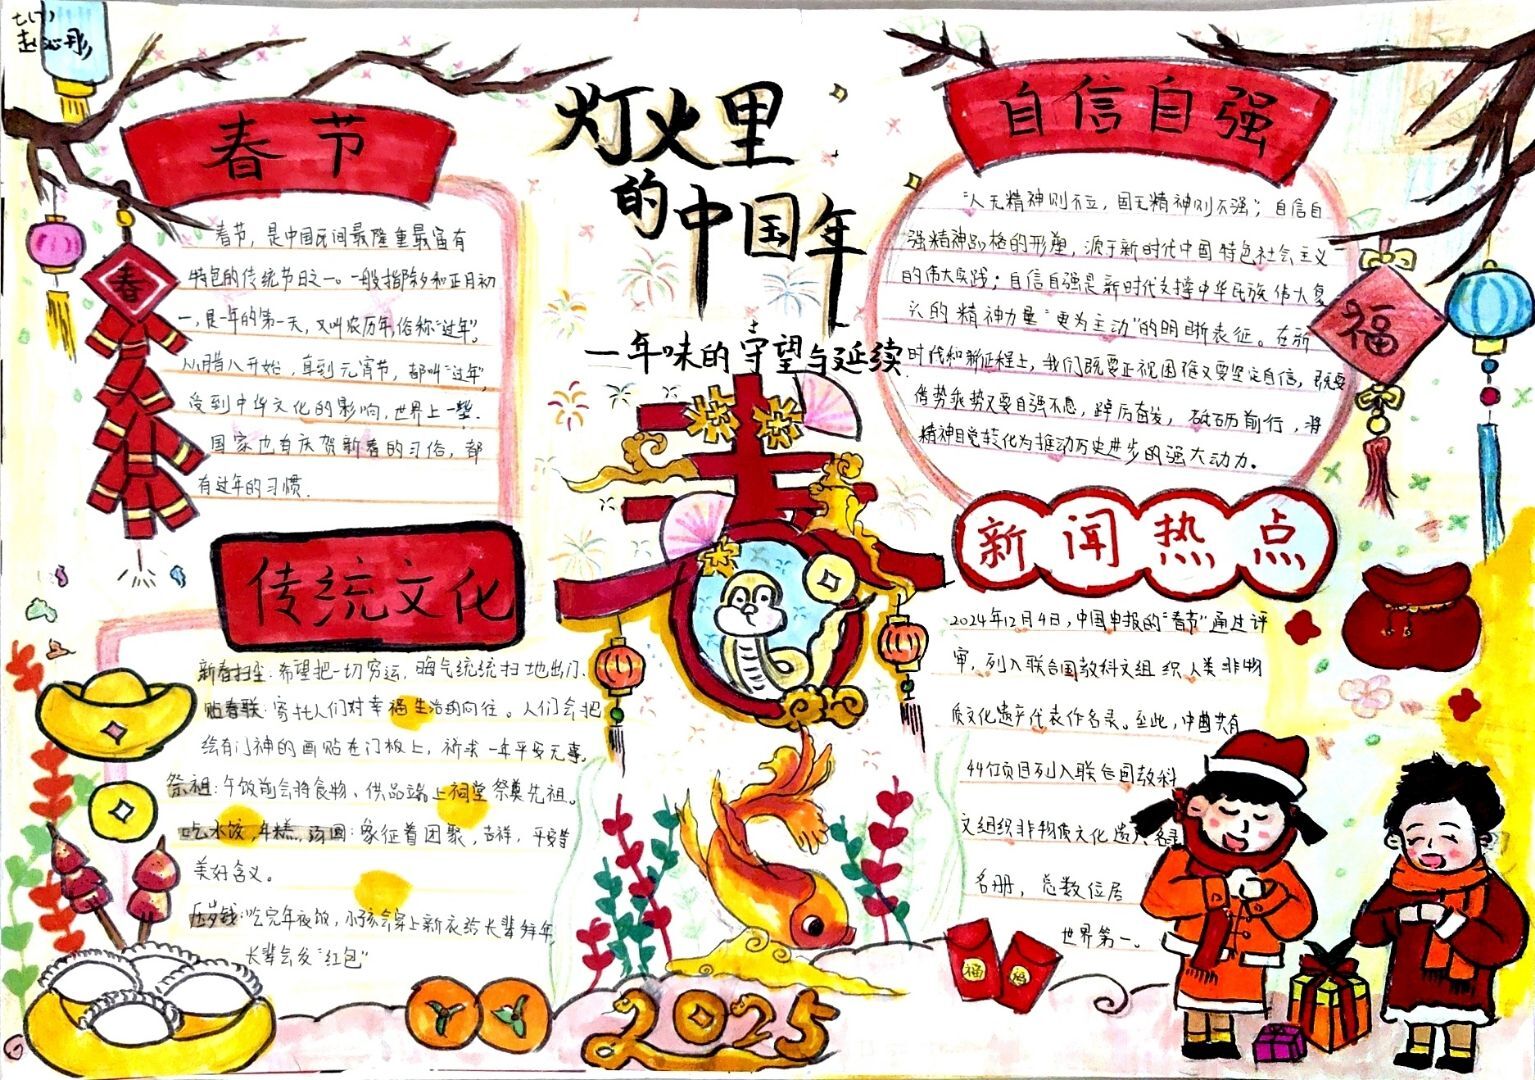 七(1)
赵沁彤
灯火里
的中国年
一年味的守望与延续
春节
春节，是中国民间最隆重最富有
特色的传统节日之一。一般指除夕和正月初
一，是一年的第一天，又叫农历年俗称"过年"。
从腊八开始，直到元宵节，都叫"过年"，
受到中华文化的影响，世界上一些
国家也有庆贺新春的习俗，都
有过年的习惯.
春
传统文化
新春扫尘：希望把一切穷运，晦气统统扫地出门.
贴春联：寄托人们对幸福生活的向往。人们会把
绘有门神的画贴在门板上，祈求一年平安无事。
祭祖：午饭前会将食物、供品端上祠堂祭奠先祖。
吃水饺，年糕，汤圆：象征着团聚，吉祥，平安等
美好含义。
压岁钱：吃完年夜饭，小孩会穿上新衣给长辈拜年
长辈会发"红包"
自信自强
"人无精神则不立，国无精神则不强"；自信自
强精神品格的形塑，源于新时代中国特色社会主义
的伟大实践；自信自强是新时代支撑中华民族伟大复
兴的精神力量"更为主动"的明晰表征。在新
时代和新征程上，我们既要正视困难又要坚定自信，既要
借势乘势又要自强不息，踔厉奋发，砥砺前行，将
精神自觉转化为推动历史进步的强大动力。
福
新闻热点
2024年12月4日，中国申报的"春节"通过评
审，列入联合国教科文组织人类非物
质文化遗产代表作名录。至此，中国共有
44个项目列入联合国教科
文组织非物质文化遗产名录
名册，总数位居
世界第一。
福
福
2025